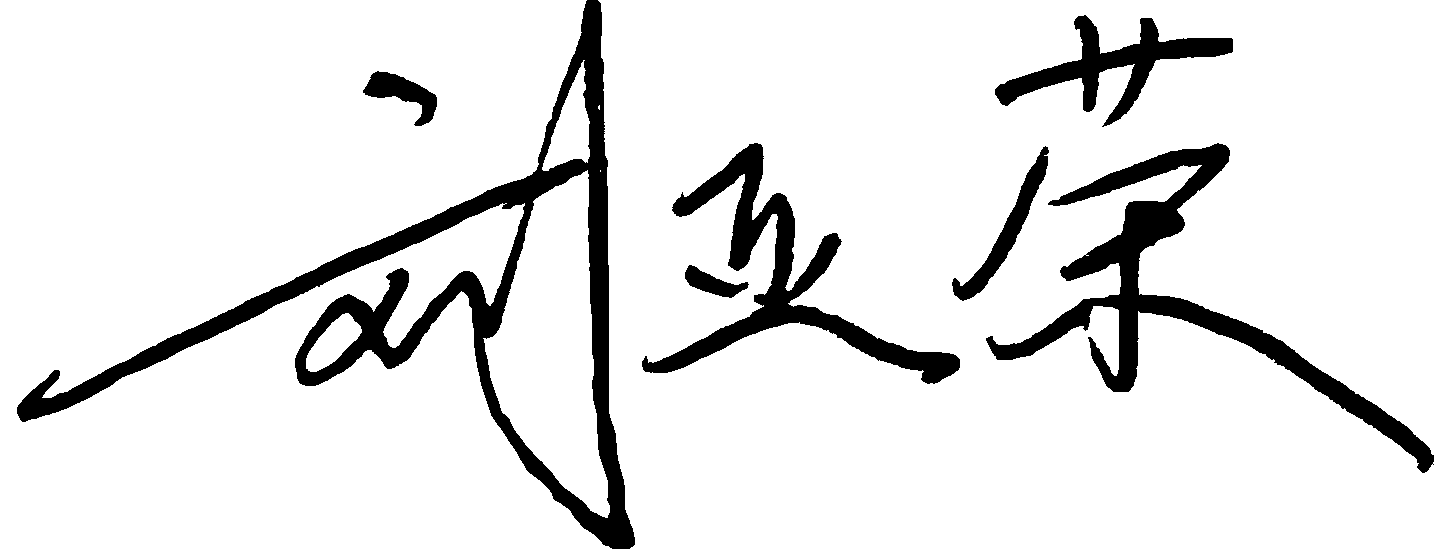 刘亚荣